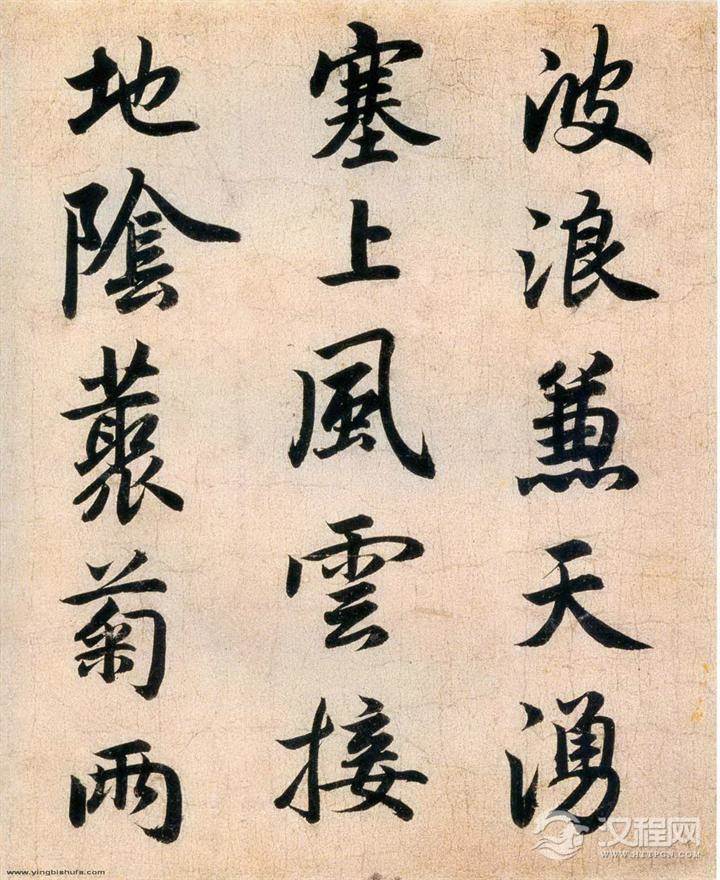 波浪兼天湧
塞上風雲接
地陰叢菊兩
汉程网
WWW.HTTPCN.COM
www.yingbishufa.com